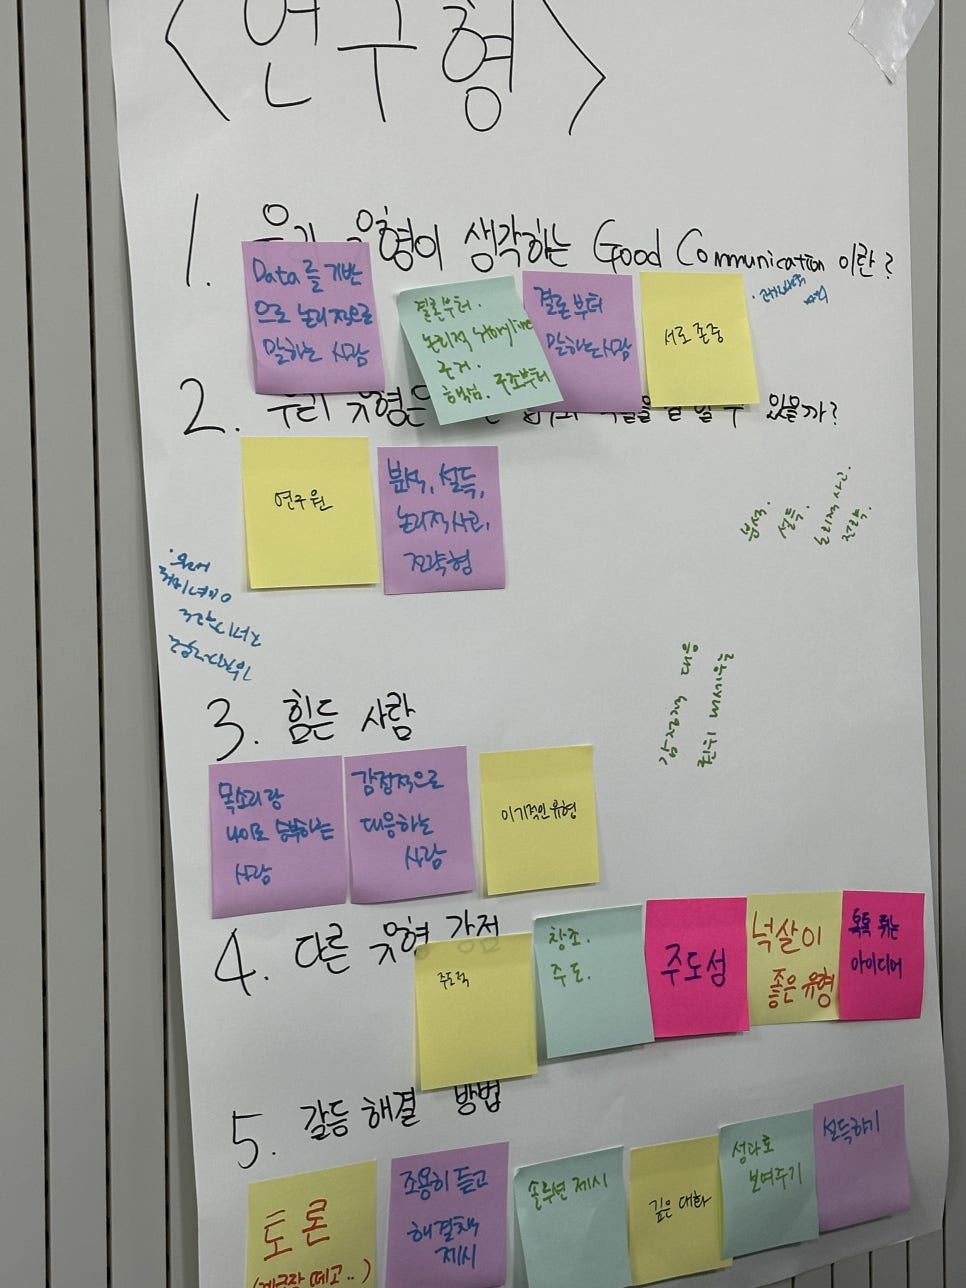 <연구형>
1. 우리 유형이 생각하는 Good Communication 이란?
Data를 기반
으로 논리적으로
말하는 사람
결론부터.
논리적 storyline
근거.
핵심. 구조부터
결론부터
말하는 사람
서로 존중
2. 우리 유형은 있을까?
연구원
분석, 설득,
논리적사고,
전략형
분석.
설득.
논리적 사고.
전략.
3. 힘든 사람
목소리랑
나이로 승부하는
사람
감정적으로
대응하는
사람
이기적인 유형
4. 다른 유형 강점
주도적
창조.
주도.
주도성
넉살이
좋은 유형
톡톡 튀는
아이디어
5. 갈등 해결 방법
토론
(계급장 떼고..)
조용히 듣고
해결책
제시
솔루션 제시
깊은 대화
성과로
보여주기
설득하기